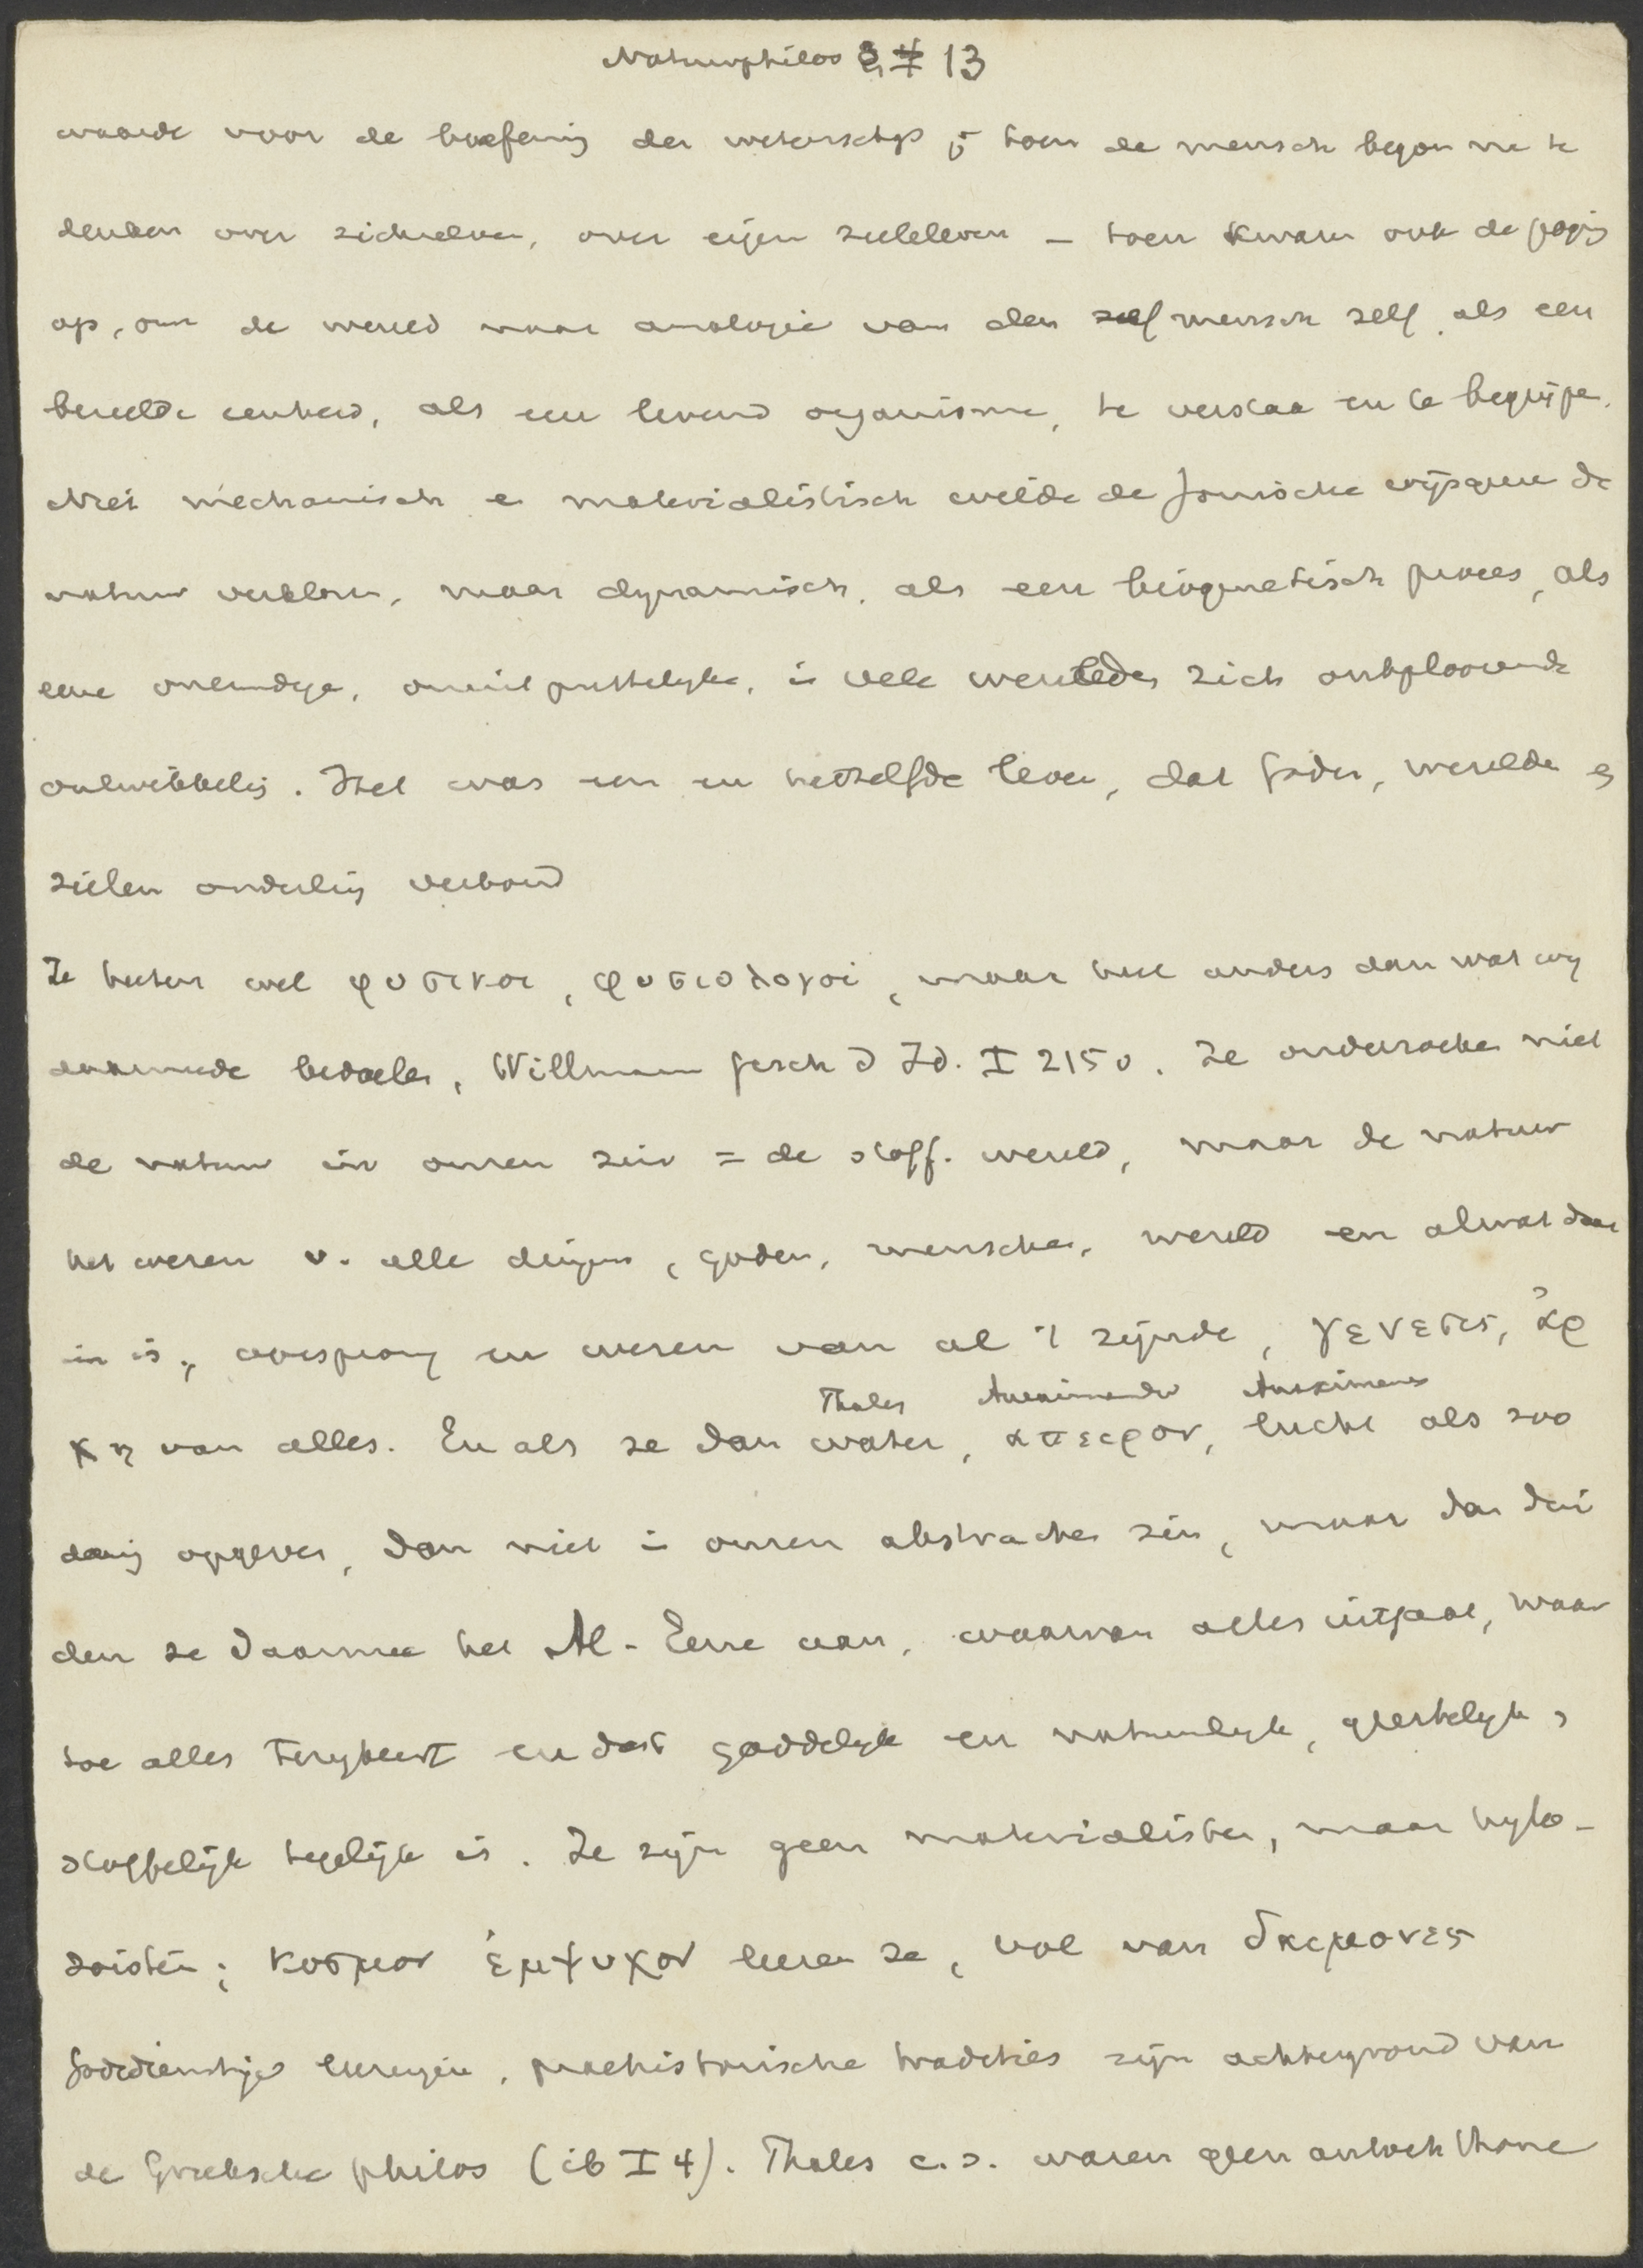 Naturphilos 13
waarde voor de beoefening der wetenschap; toen de mensch begon na te
denken over zichzelven, over eigen zieleleven – toen kwam ook de poging
op, om de wereld naar analogie van den zelf mensch zelf, als een
bezielde eenheid, als een levend organisme, te verstaan en te begrijpen.
Niet mechanisch en materialistisch wilde de Ionische wijsgeeren de
natuur verklaren, maar dynamisch, als een biogenetisch proces, als
eene oneindige, onuitputtelijke, in vele werelden zich ontplooiende
ontwikkeling. Het was een en hetzelfde leven, dat goden, werelden en
zielen onderling verbond
Ze heeten wel φυσικοι, φυσιολογοι, maar heel anders dan wat wij
daarmede bedoelen, Willmann Gesch d Id. I 215 v. Ze onderzoeken niet
de natuur in onzen zin = de stoff. wereld, maar de natuur
het wezen v. alle dingen, goden, menschen, wereld en al wat daar
in is, oorsprong en wezen van al 't zijnde, γενεσις, ἀρ
Thales Anaximander Anaximenes
χη van alles. En als ze dan water, απειρον, lucht als zoo
danig opgeven, dan niet in onzen abstracten zin, maar dan dui
den ze daarmee het Al-Eene aan, waarvan alles uitgaat, waar
toe alles terugkeert en dat goddelijk en natuurlijk, geestelijk,
stoffelijk tegelijk is. Ze zijn geen materialisten, maar hylo-
zoisten; κοσμον ἐμψυχον leeren ze, vol van δαιμονες
Godsdienstige liturgieen, praehistorische tradities zijn achtergrond van
de Grieksche philos (ib I 4). Thales c.s. waren geen autochthone